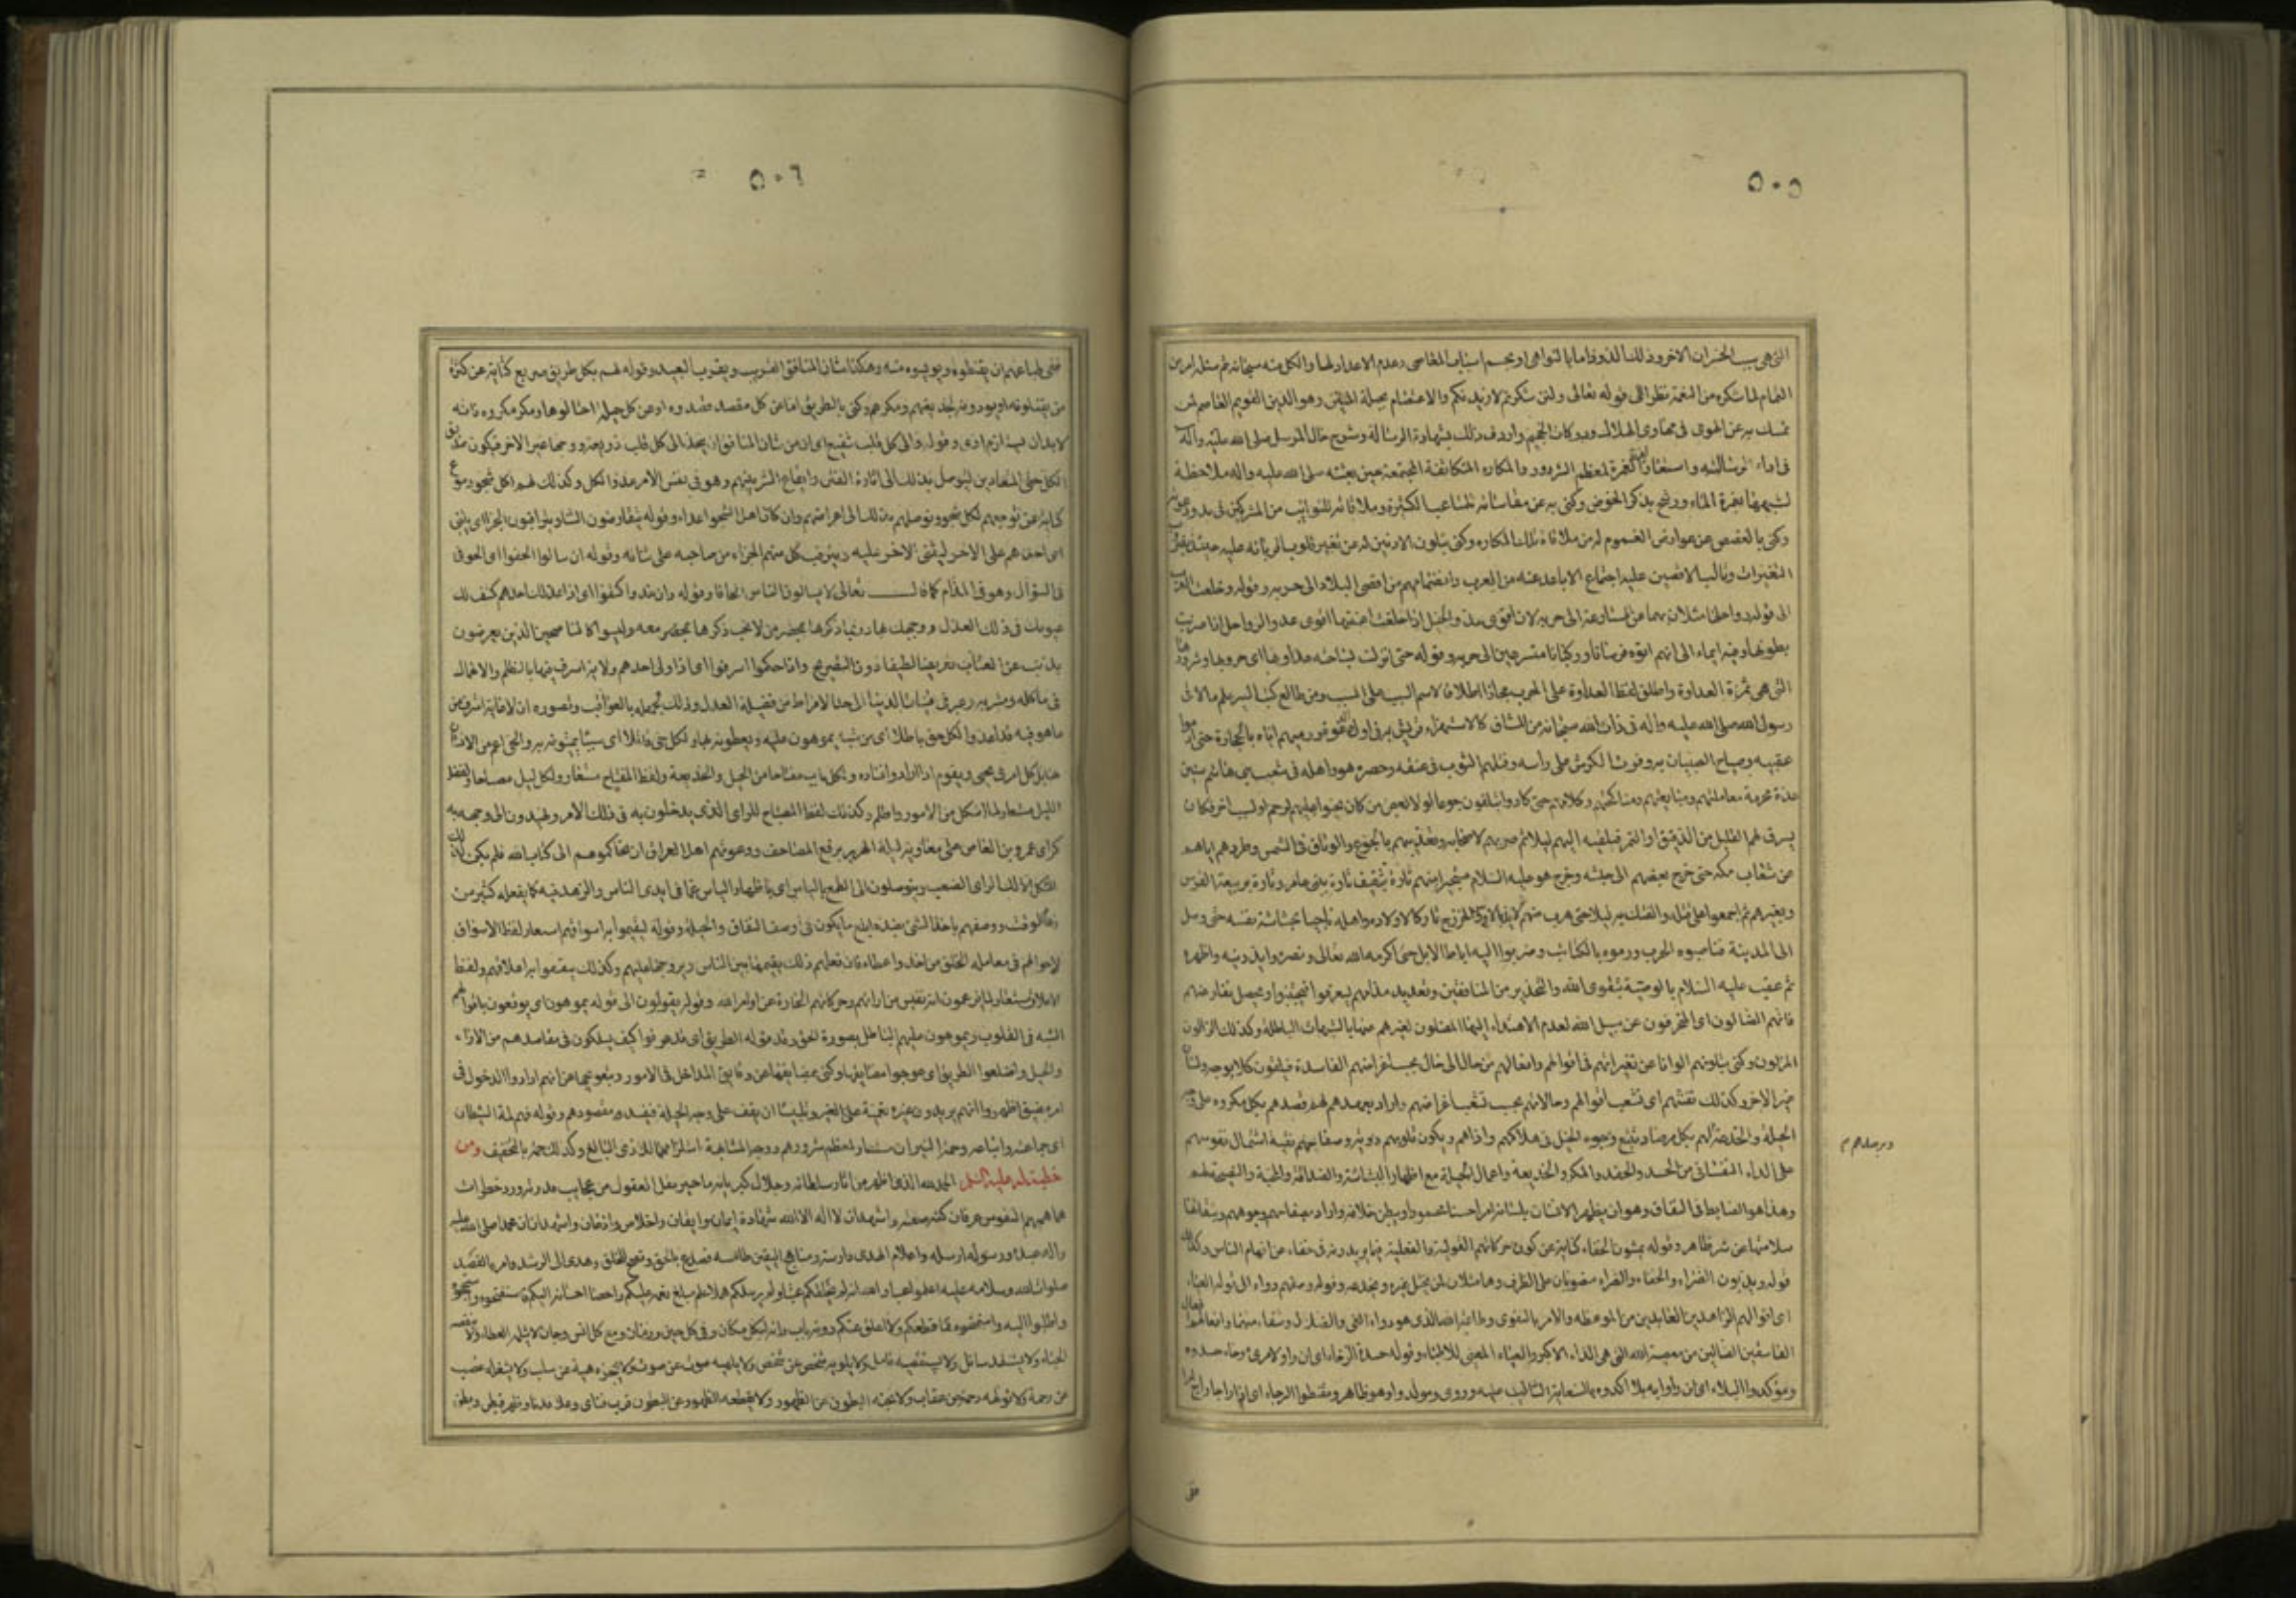 ٥٠٥
التى هى سبب الخسران الاخروى وذلك الذود اما بالنواهى او بحسم اسباب المعاصى وعدم الاعداد لها والكل منه سبحانه ثم سئله امرين
التمام لما شكره من النعمة نظرا الى قوله تعالى ولئن شكرتم لازيدنكم والاعتصام بحبله المتين وهو الدين القويم العاصم لمن
تمسك به عن الهوى فى مهاوى الهلاك ودركات الجحيم واردف ذلك بشهادة الرسالة وشرح حال المرسل صلى الله عليه وآله
فى اداء رسالته واستعار لفظ الغمرة لمعظم الشرور والمكاره المتكاثفة المجتمعة حين بعثه صلى الله عليه واله ملاحظة
لشبهها بغمرة الماء ورشح بذكر الخوض وكنى به عن مقاساته للمتاعب الكثيرة وملاقاته للنوائب من المشركين فى بدو دعوته
وكنى بالغصص عن عوارض الغموم له من ملاقاة تلك المكاره وكنى بتلون الادنين له عن تغير قلوب اقربائه عليه حينئذ
التغيرات وتالب الاقصين عليه اجتماع الاباعد عنه من العرب وانضمامهم من اقصى البلاد الى حربه وقوله وخلعت العرب
الى قوله رواحلها مثلان بهما عن المسارعة الى حربه لان اقوى عدو الخيل اذا خلعت اعنتها اقوى عدو الرواحل اذا ضربت
بطونها وفيه ايماء الى انهم اتوه فرسانا وركبانا مسرعين الى حربه وقوله حتى انزلت بساحته عداوتها اى حروبها وشرورها
التى هى ثمرة العداوة واطلق لفظ العداوة على الحرب مجازا اطلاقا لاسم السبب على المسبب ومن طالع كتب السير علم ما لاقى
رسول الله صلى الله عليه واله فى ذات الله سبحانه من المشاق كالاستهزاء قريش به فى اول الدعوة ورميهم اياه بالحجارة حتى ادموا
عقبيه وصياح الصبيان به وفرث الكرش على راسه وفتلهم الثوب فى عنقه وحصره هو واهله فى شعب بنى هاشم سنين
عدة محرمة معاملتهم ومبايعتهم ومناكحتهم وكلامهم حتى كادوا يتلفون جوعا لولا بعض من كان يحنوا عليهم لرحم او لسبب اخر فكان
يسرق لهم القليل من الدقيق او التمر فيلقيه اليهم ليلا ثم ضربهم لاصحابه وتعذيبهم بالجوع والوثاق فى الشمس وطردهم اياهم
من شعاب مكة حتى خرج بعضهم الى حبشه وخرج هو عليه السلام مستجيرا منهم تارة بثقيف تارة ببنى عامر وتارة بربيعة الفرس
وبغيرهم ثم اجمعوا على قتله والفتك به ليلا حتى هرب منهم لائذا بالاوس والخزرج تاركا لاولاده واهله ناجيا بحشاشة نفسه حتى وصل
الى المدينة فناصبوه الحرب ورموه بالكتائب وضربوا اليه اباط الابل حتى اكرمه الله تعالى ونصره وايد دينه واظهره
ثم عقب عليه السلام بالوصية بتقوى الله والتحذير من المنافقين وتعديد مذامهم ليعرفوا فيجتنبوا ويحصل نفارهم
فانهم الضالون اى المنحرفون عن سبيل الله لعدم الاهتداء اليها المضلون لغيرهم عنها بالشبهات الباطلة وكذلك الزالون
المزلون وكنى بتلونهم الوانا عن تغيراتهم فى اقوالهم وافعالهم من حال الى حال بحسب اغراضهم الفاسدة فيلقون كلا بوجه ولسان
غير الاخر وكذلك تفتنهم اى تشعب اقوالهم وحالاتهم بحسب تشعب اغراضهم واراد بعمدهم لهم قصدهم بكل مكروه على وجه
الحيلة والخدعة لهم بكل مرصاد وتتبع وجوه الحيل فى هلاكهم واذاهم وبكون قلوبهم دوية وصفاحهم نقية اشتمال نفوسهم
ويرصدهم م
على الداء النفسانى من الحسد والحقد والمكر والخديعة واعمال الحيلة مع اظهار البشاشة والصداقة والمحبة والنصيحة لهم
وهذا هو الضابط فى النفاق وهو ان يظهر الانسان بلسانه امرا حسنا محمودا ويبطن خلافه واراد بصفاحهم وجوههم وبنقائها
سلامتها عن شر ظاهر وقوله يمشون الخفاء كناية عن كون حركاتهم القولية والفعلية فيما يريدونه فى خفاء عن افهام الناس وكذلك
قوله ويدبون الضراء والخفاء والضراء منصوبان على الظرف وهما مثلان لمن يختل غيره ويخدعه وقوله وصفهم دواء الى قوله العياء
اى اقوالهم اقوال الزاهدين العابدين من الموعظة والامر بالتقوى وطاعة الله الذى هو دواء الغى والضلال وشفاء منهما وافعالهم افعال
الفاسقين الضالين من معصية الله التى هى الداء الاكبر والعياء المعيى للاطباء وقوله حسدة الرخاء اى ان راوا لامرئ رخاء حسدوه
ومؤكدوا البلاء اى ان راوا به بلاء اكدوه بالسعاية والتاليب عليه وروى ومولدوا وهو ظاهر ومقنطوا الرجاء اى اذا رجا راج امرا
فى
٥٠٦
ففى طباعهم ان يقنطوه ويويسوه منه وهكذا شان المنافق القريب ويقرب البعيد وقوله لهم بكل طريق صريع كناية عن كثرة
من يقتلونه او يوذونه بخديعتهم ومكرهم وكنى بالطريق اما عن كل مقصد قصدوه او عن كل حيلة احتالوها ومكر مكروه فانه
لا بد ان يستلزم اذى وقوله والى كل قلب شفيع اى ان من شان المنافق ان يتخذ الى كل قلب ذريعة ووجها غير الاخر فيكون صديق
الكل حتى المتعادين ليتوصل بذلك الى اثارة الفتن وايقاع الشر بينهم وهو فى نفس الامر عدو الكل وكذلك لهم لكل شجو دموع
كناية عن توجعهم لكل شجو وتوصلهم بذلك الى اغراضهم وان كان اهل الشجو اعداء وقوله يتقارضون الثناء ويتراقبون الجزاء اى يثنى
احدهم على الاخر ليثنى الاخر عليه ويترقب كل منهم الجزاء من صاحبه على ثنائه وقوله ان سالوا الحفوا اى الحوا فى
فى السؤال وهو فى المذام كما قال تعالى لا يسالون الناس الحافا وقوله وان عذلوا كشفوا اى اذا عذلك احدهم كشف لك
عيوبك فى ذلك العذل ووجهك بها وربما ذكرها بمحضر من لا تحب ذكرها بمحضر معه وليسوا كالناصحين الذين يعرضون
بالذنب عن العتاب تعريضا لطيفا دون التصريح واذا حكموا اسرفوا اى اذا ولى احدهم ولاية اسرف فيها بالظلم والانهماك
فى ماكله ومشربه وعبر فى قينات الدنيا الى حد الافراط من فضيلة العدل وذلك لجهله بالعواقب وتصوره ان لا غاية اشرف من
ما هو فيه قد اعدوا لكل حق باطلا اى من شبه يموهون عليه ويغطونه بها ولكل حى قاتلا اى سببا يميتونه به والحى اعم من الانسان
هنا بل كل امر يحيى ويقوم اذا ارادوا افساده ولكل باب مفتاحا من الحيل والخديعة ولفظ المفتاح مستعار ولكل ليل مصباحا ولفظ
الليل مستعار لما اشكل من الامور واظلم وكذلك لفظ المصباح للراى الذى يدخلون به فى ذلك الامر ويهتدون الى وجهه به
كراى عمرو بن العاص على معاوية ليلة الهرير برفع المصاحف ودعوتهم اهل العراق ان يحاكموهم الى كتاب الله فلم يكن لذلك
المشكل الا ذلك الراى الصعب ويتوصلون الى الطمع بالياس اى باظهار الياس عما فى ايدى الناس والزهد فيه كما يفعله كثير من
زهاد الوقت ووصفهم باخذ الشىء بضده ابلغ ما يكون فى وصف النفاق والحيلة وقوله ليقيموا به اسواقهم استعار لفظ الاسواق
لاحوالهم فى معاملة الخلق من اخذ واعطاء فان فعلهم ذلك يقيمها بين الناس ويروجها عليهم وكذلك ينفقوا به اعلاقهم ولفظ
الاعلاق مستعار لما يزعمون انه نفيس من ارائهم وحركاتهم الخارجة عن اوامر الله وقوله يقولون الى قوله يموهون اى يوقعون باقوالهم
الشبه فى القلوب ويموهون عليهم الباطل بصورة الحق وقوله قد هونوا الطريق اى قد عرفوا كيف يسلكون فى مقاصدهم من الاراء
والحيل واضلعوا الطريق اى عوجوا مضائقها وكنى بمضايقها عن دقائق المداخل فى الامور وبتعويجها عن انهم ارادوا الدخول فى
امر مضيق اظهروا انهم يريدون غيره تعمية على الغير وتلبيسا ان يقف على وجه الحيلة فيفسد مقصودهم وقوله فهم لمة الشيطان
اى جماعته واتباعه وحمة النيران مستعار لمعظم شرورهم ووجه المشابهة استلزامها للاذى البالغ وكذلك حمة بالتخفيف ومن
خطبة له عليه السلم الحمد لله الذى اظهر من اثار سلطانه وجلال كبريائه ما حير مقل العقول من عجايب قدرته وردع خطرات
هماهم النفوس عن عرفان كنه صفته واشهد ان لا اله الا الله شهادة ايمان وايقان واخلاص واذعان واشهد ان محمدا صلى الله عليه
واله عبده ورسوله ارسله واعلام الهدى دارسة ومناهج اليقين طامسة فصدع بالحق ونصح للخلق وهدى الى الرشد وامر بالقصد
صلوات الله وسلامه عليه اعلموا عباد الله انه لم يخلقكم عبثا ولم يرسلكم هملا علم مبلغ نعمه عليكم واحصا احسانه اليكم فاستفتحوه واستنجحوه
واطلبوا اليه واستمنحوه فما قطعكم ولا اغلق عنكم دونه باب وانه لبكل مكان وفى كل حين واوان ومع كل انس وجان لا يثلمه العطاء ولا ينقصه
الحباء ولا يستنفده سائل ولا يستقصيه نائل ولا يلويه شخص عن شخص ولا يلهيه صوت عن صوت ولا تحجزه هبة عن سلب ولا يشغله غضب
عن رحمة ولا تولهه رحمة عن عقاب ولا يجنه البطون عن الظهور ولا يقطعه الظهور عن البطون قرب فناى وعلا فدنا وظهر فبطن وبطن